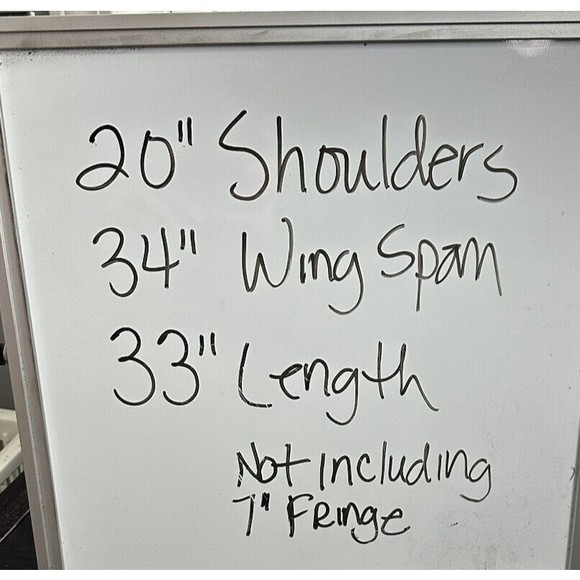 20" Shoulders
34" Wing Span
33" Length
Not including
7" FRinge